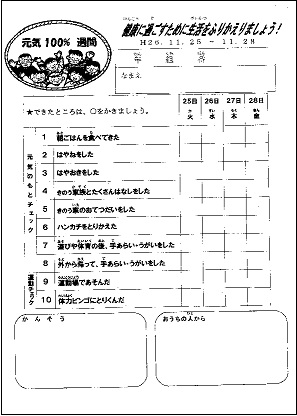 健康に過ごすために生活をふりかえりましょう！
元気100% 週間
H26.11.25 ～ 11.28
年 組 番
なまえ
★できたところは、○をかきましょう。
25日 26日 27日 28日
火 水 木 金
元気のもとチェック
1 朝ごはんを食べてきた
2 はやねをした
3 はやおきをした
4 きのう家族とたくさんはなしをした
5 きのう家のおてつだいをした
6 ハンカチをとりかえた
7 遊びや体育の後、手あらい・うがいをした
8 外から帰って、手あらい・うがいをした
運動チェック
9 運動場であそんだ
10 体力ビンゴにとりくんだ
かんそう
おうちの人から